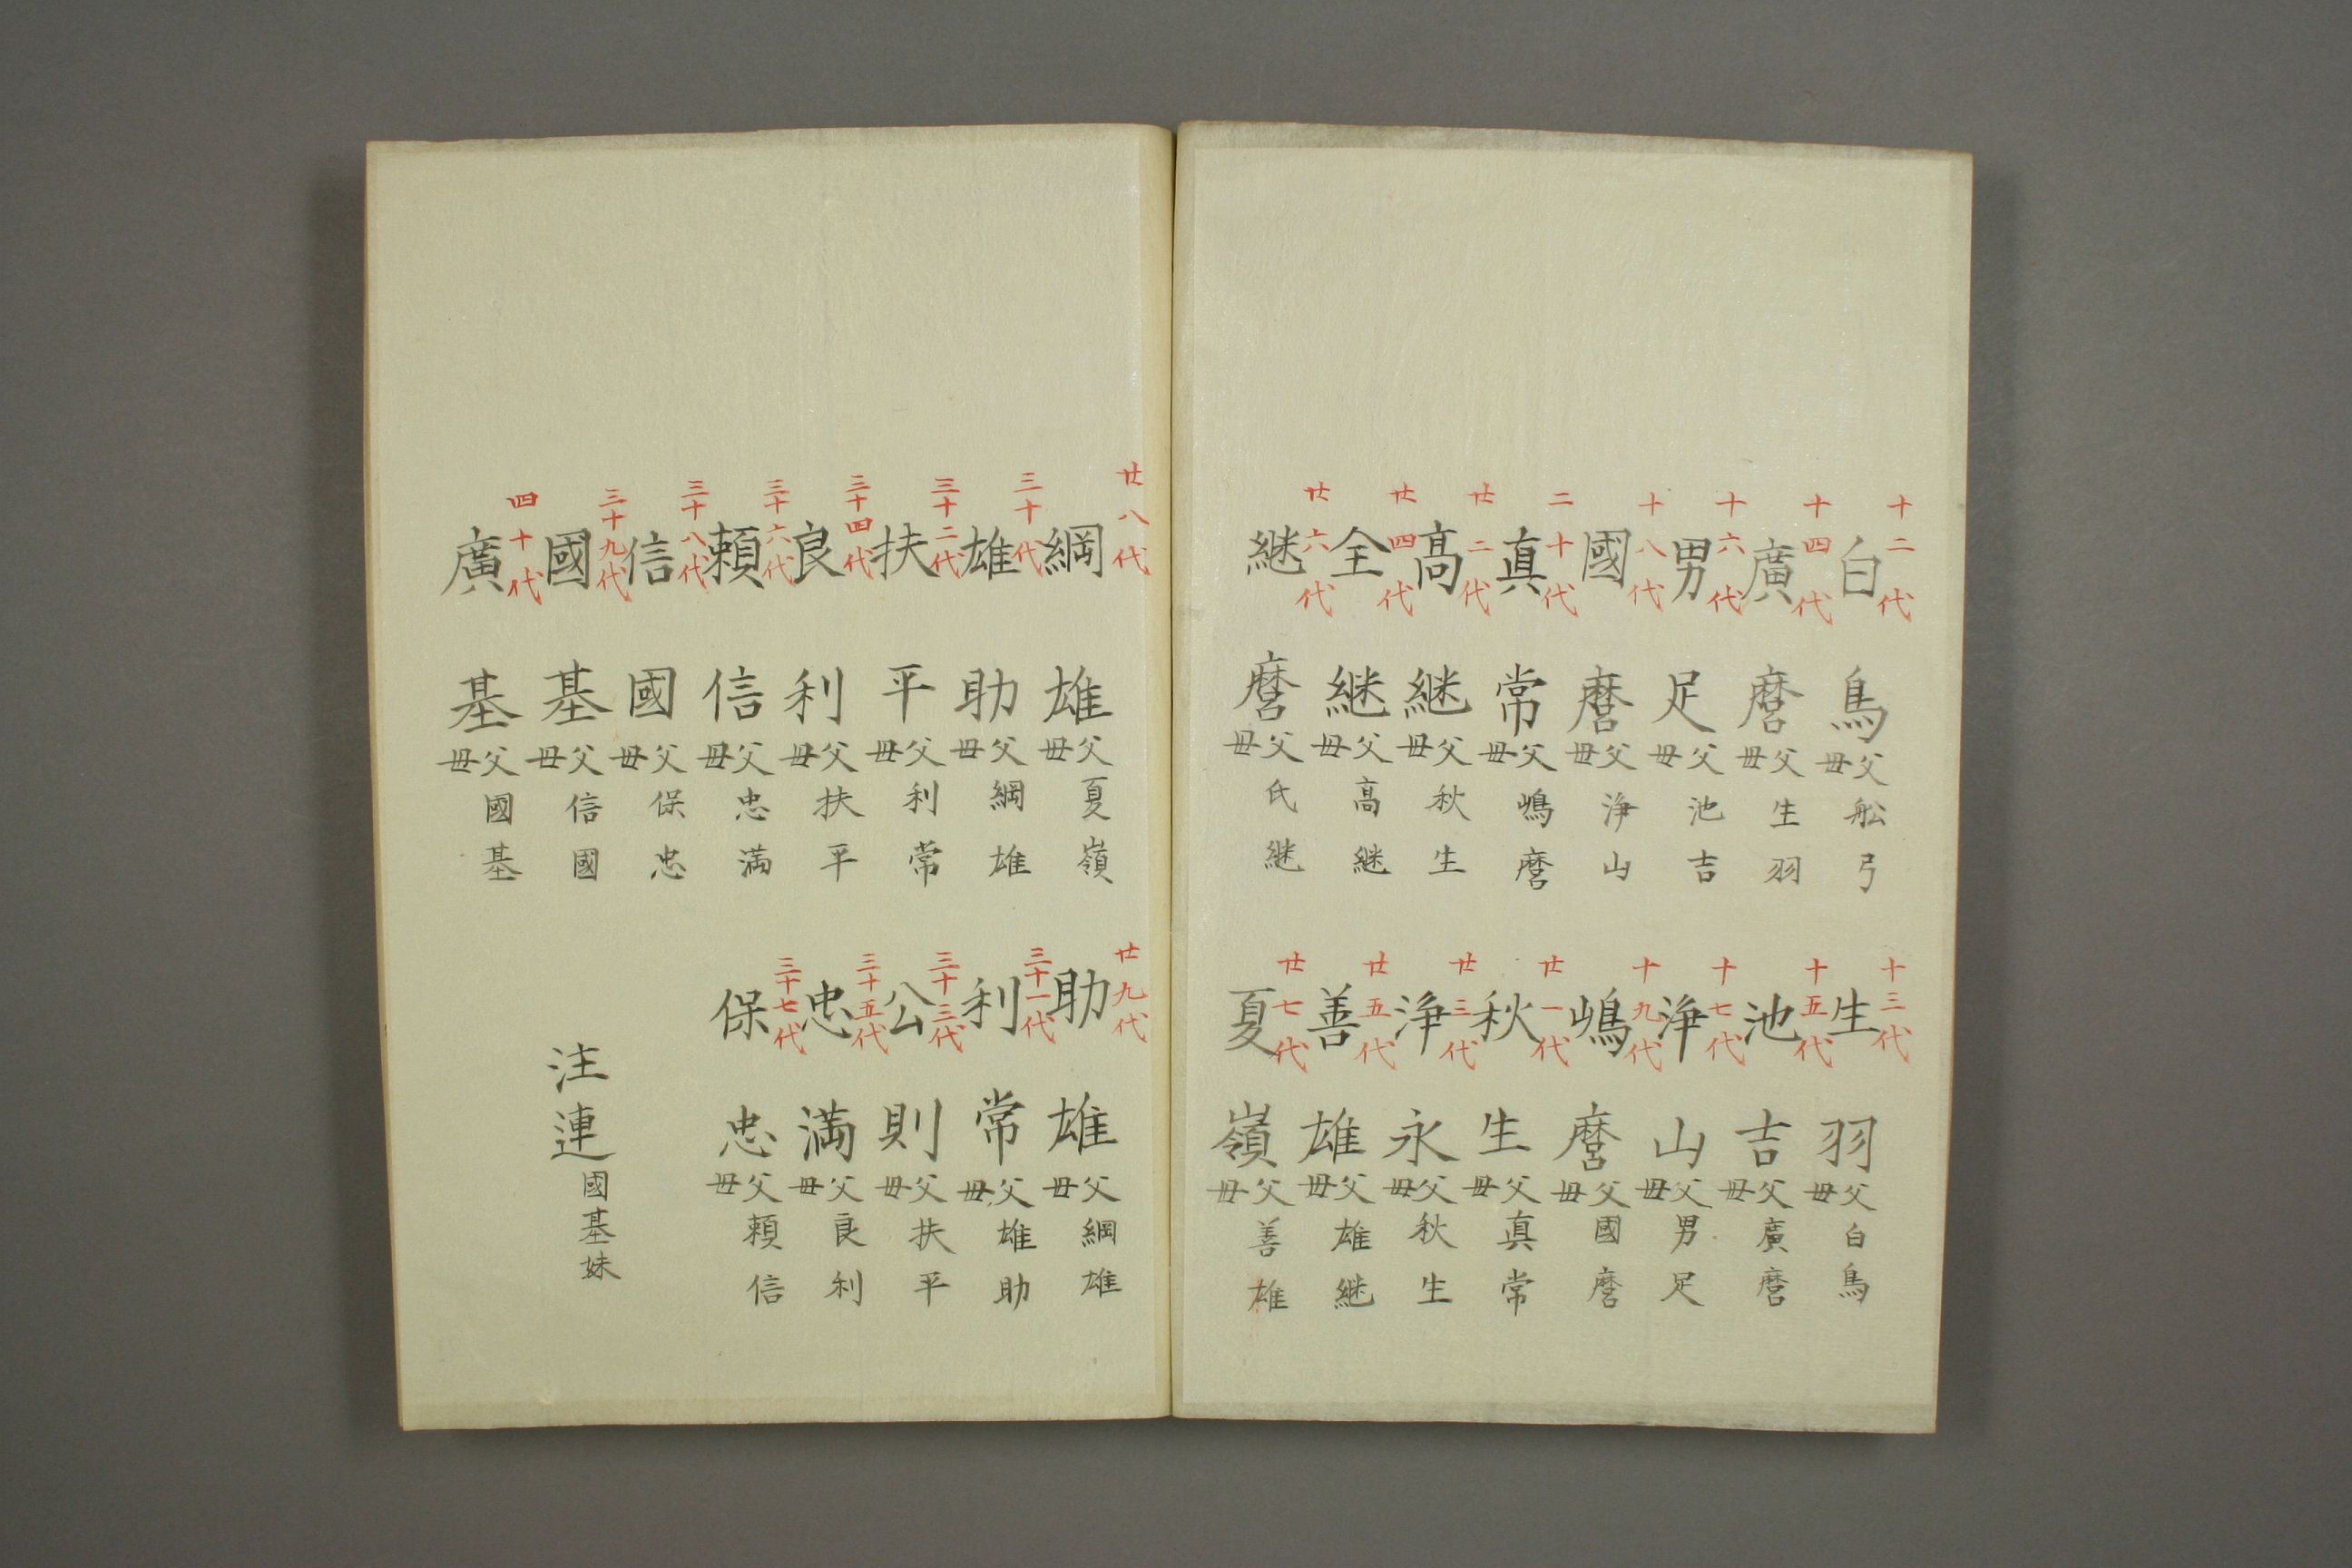 十二代
白鳥 父船弓 母
十三代
生羽 父白鳥 母
十四代
廣麿 父生羽 母
十五代
池吉 父廣麿 母
十六代
男足 父池吉 母
十七代
浄山 父男足 母
十八代
國麿 父浄山 母
十九代
嶋麿 父國麿 母
二十代
真常 父嶋麿 母
廿一代
秋生 父真常 母
廿二代
髙継 父秋生 母
廿三代
浄永 父秋生 母
廿四代
全継 父髙継 母
廿五代
善雄 父雄継 母
廿六代
継麿 父氏継 母
廿七代
夏嶺 父善雄 母
廿八代
綱雄 父夏嶺 母
廿九代
助雄 父綱雄 母
三十代
雄助 父綱雄 母
三十一代
利常 父雄助 母
三十二代
扶平 父利常 母
三十三代
公則 父扶平 母
三十四代
良利 父扶平 母
三十五代
忠満 父良利 母
三十六代
頼信 父忠満 母
三十七代
保忠 父頼信 母
三十八代
信國 父保忠 母
三十九代
國基 父信國 母
注連 國基妹
四十代
廣基 父國基 母